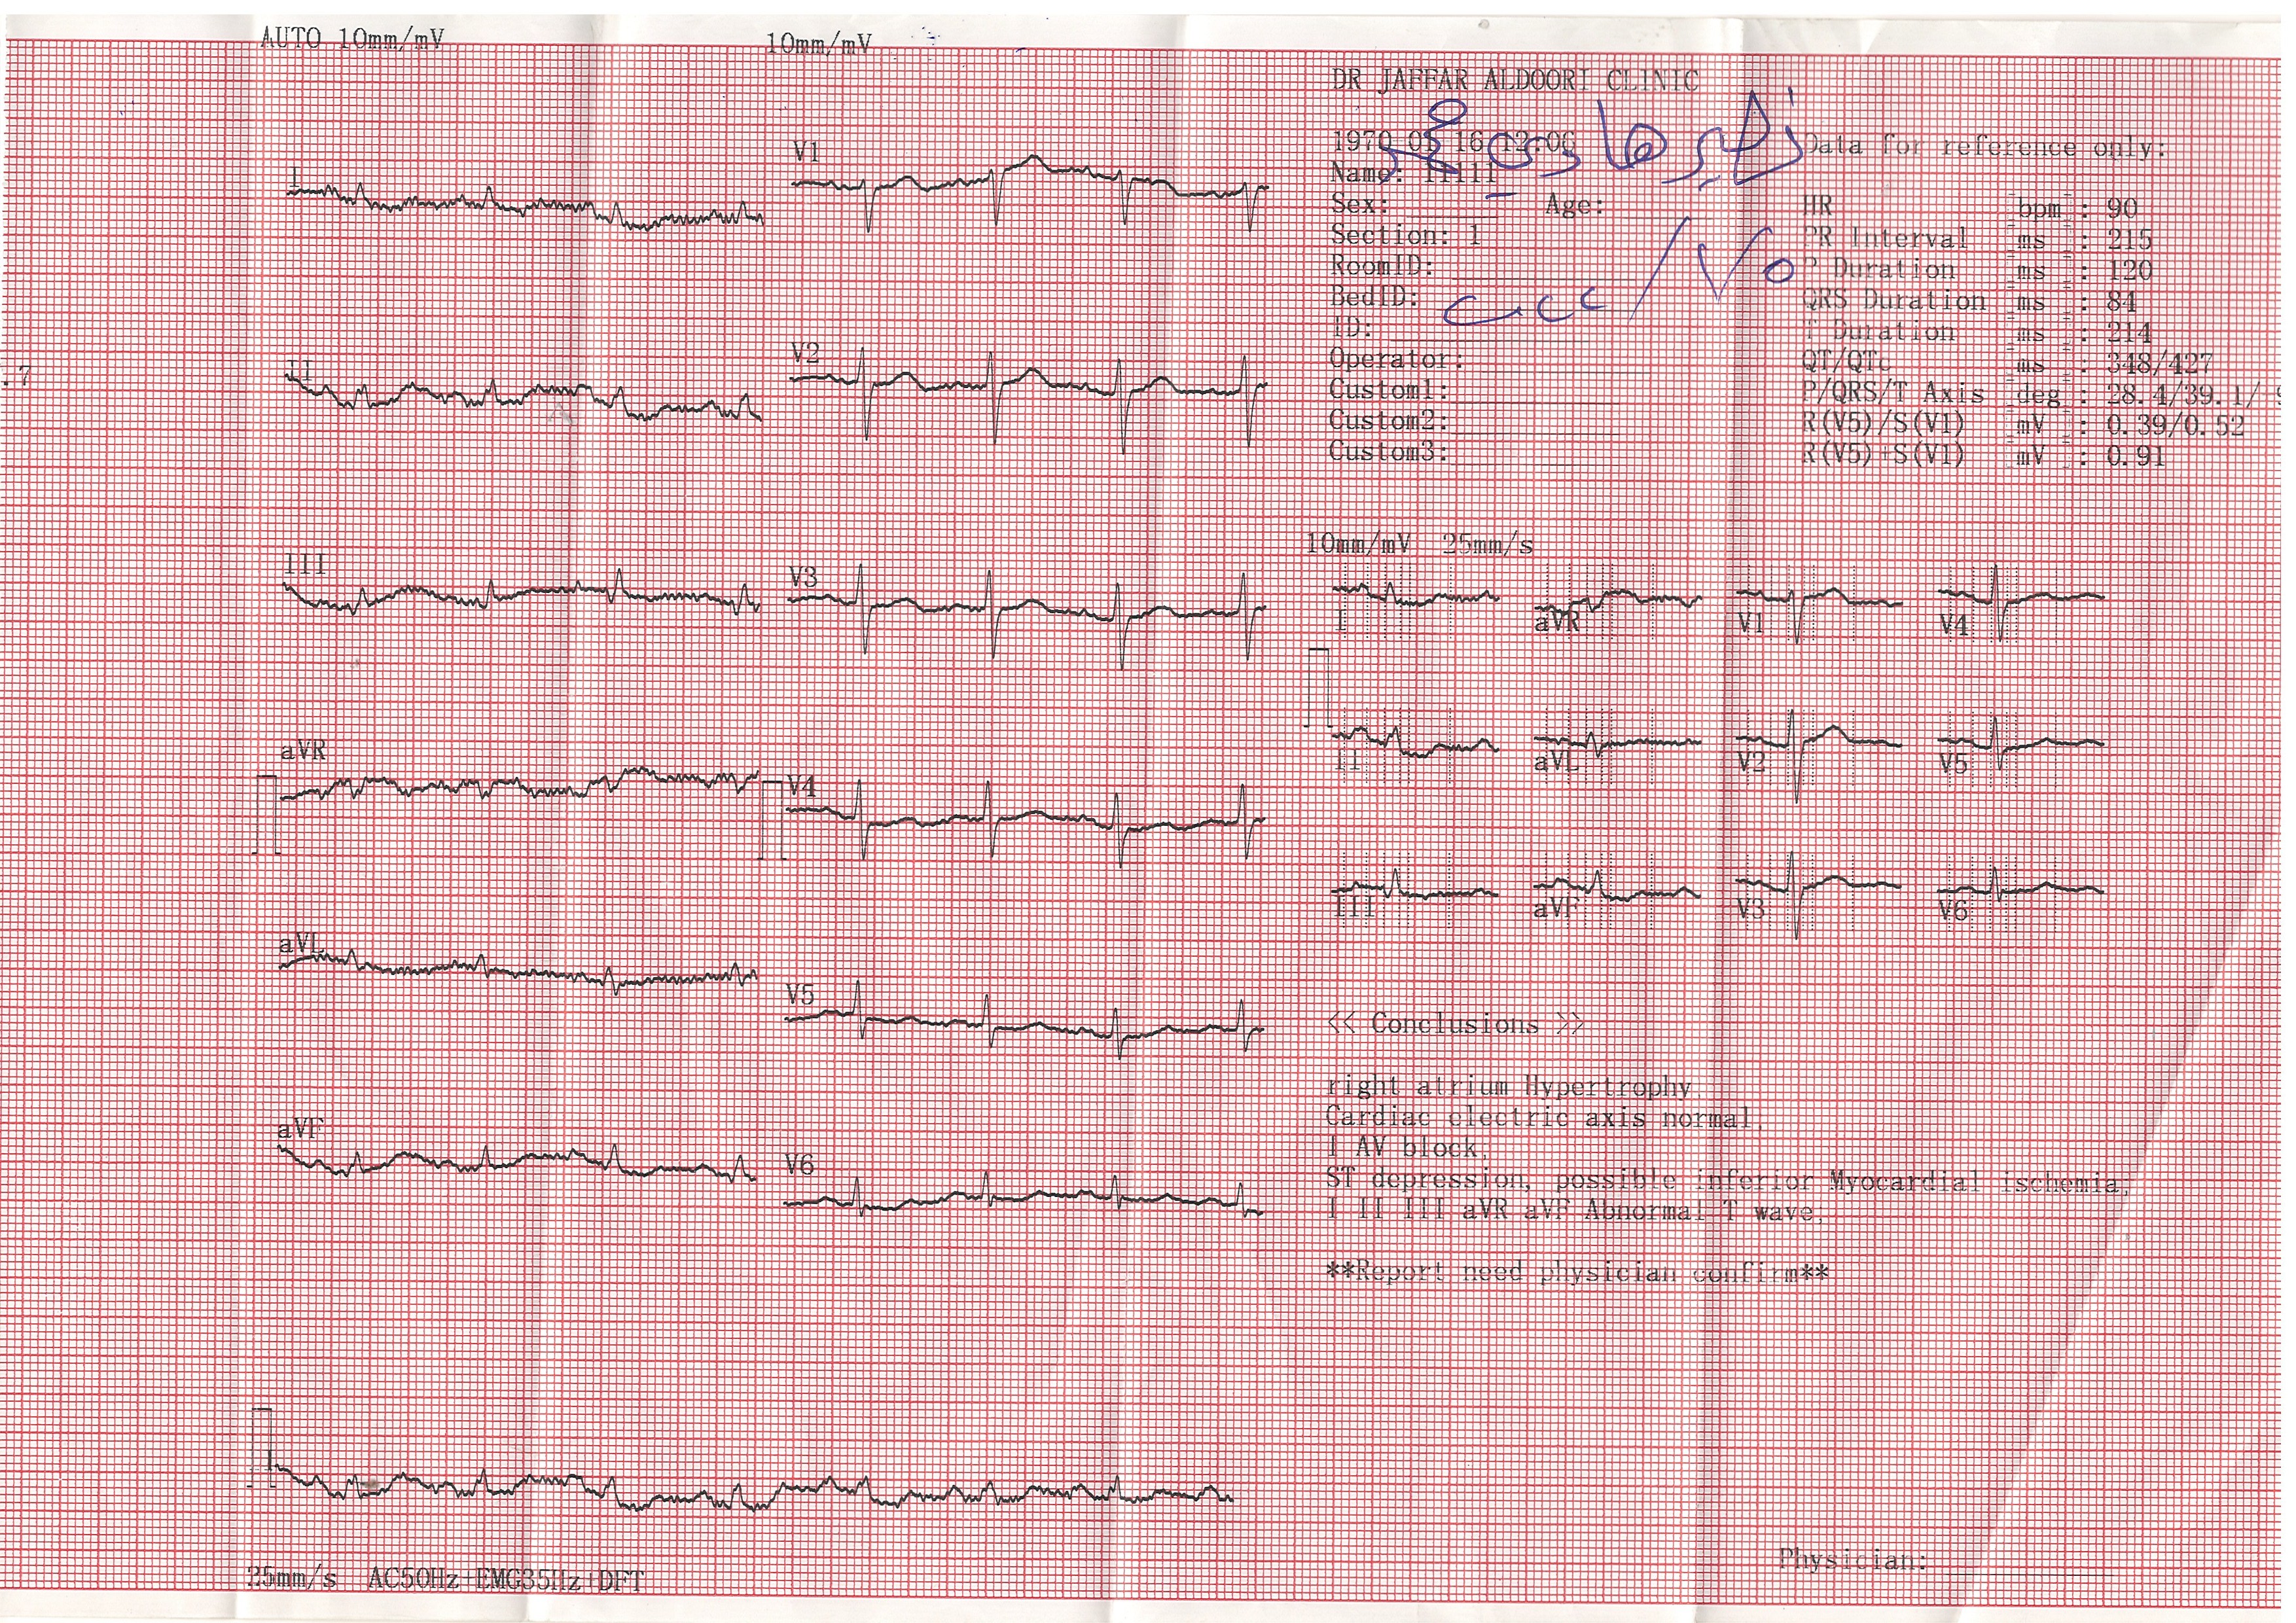 AUTO 10mm/mV
10mm/mV
DR JAFFAR ALDOORI CLINIC
1970 05 16 12:06
Name: 11111
Sex: Age:
Section: 1
RoomID:
BedID:
ID:
Operator:
Custom1:
Custom2:
Custom3:
Data for reference only:
HR bpm : 90
PR Interval ms : 215
P Duration ms : 120
QRS Duration ms : 84
T Duration ms : 214
QT/QTc ms : 348/427
P/QRS/T Axis deg : 28.4/39.1/
R(V5)/S(V1) mV : 0.39/0.52
R(V5)+S(V1) mV : 0.91
.7
I
II
III
aVR
aVL
aVF
V1
V2
V3
V4
V5
V6
10mm/mV 25mm/s
I aVR V1 V4
II aVL V2 V5
III aVF V3 V6
<< Conclusions >>
right atrium Hypertrophy,
Cardiac electric axis normal,
I AV block,
ST depression, possible inferior Myocardial ischemia,
I II III aVR aVF Abnormal T wave,
**Report need physician confirm**
25mm/s AC50Hz+EMG35Hz+DFT
Physician: